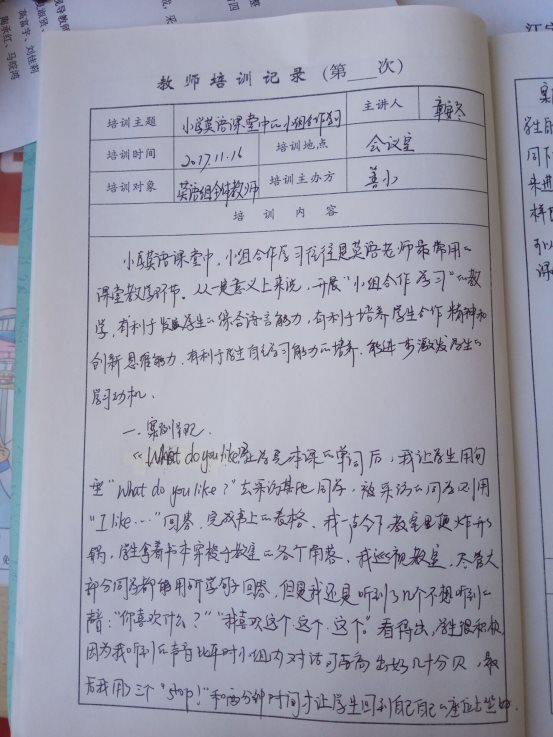 教师培训记录(第 次)
培训主题 小学英语课堂中的小组合作学习 主讲人
培训时间 2017.11.16 培训地点 会议室
培训对象 英语组全体教师 培训主办方 善小
培训内容
小学英语课堂中,小组合作学习往往是英语老师最常用的
课堂教学环节。从一定意义上来说,开展"小组合作学习"的教
学,有利于发展学生的综合语言能力,有利于培养学生合作精神和
创新思维能力,有利于学生自主学习能力的培养,能进一步激发学生的
学习动机.
一.案例
《What do you like?》在学完本课的单词后,我让学生用句
型"What do you like?"去采访其他同学,被采访的同学则用
"I like……"回答,完成书上的表格。我一声令下教室里便炸开了
锅,学生拿着书本穿梭于教室的各个角落。我巡视教室,尽管大
部分同学都能用所学句子回答,但是我还是听到了几个不想听到的
声音:"你喜欢什么?""我喜欢这个、这个、这个。"看得出,学生很积极,
因为我听到的声音比平时小组内对话时要高出好几十分贝,最
后我用了三个"stop!"和两分钟时间才让学生回到自己的座位上坐好.